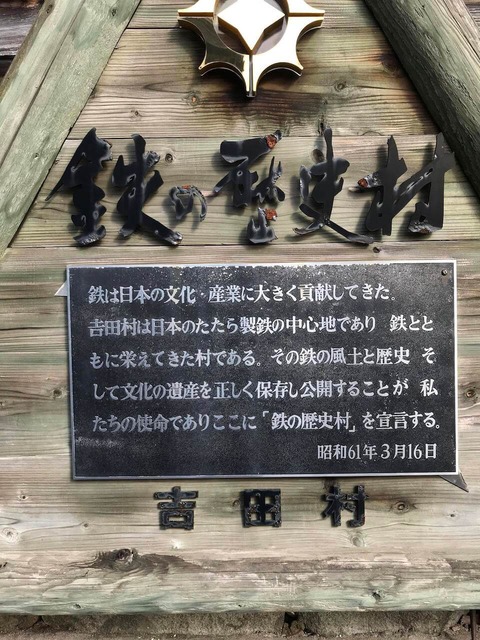 鉄の歴史村
鉄は日本の文化・産業に大きく貢献してきた。
吉田村は日本のたたら製鉄の中心地であり 鉄とと
もに栄えてきた村である。その鉄の風土と歴史 そ
して文化の遺産を正しく保存し公開することが 私
たちの使命でありここに「鉄の歴史村」を宣言する。
昭和61年3月16日
吉田村